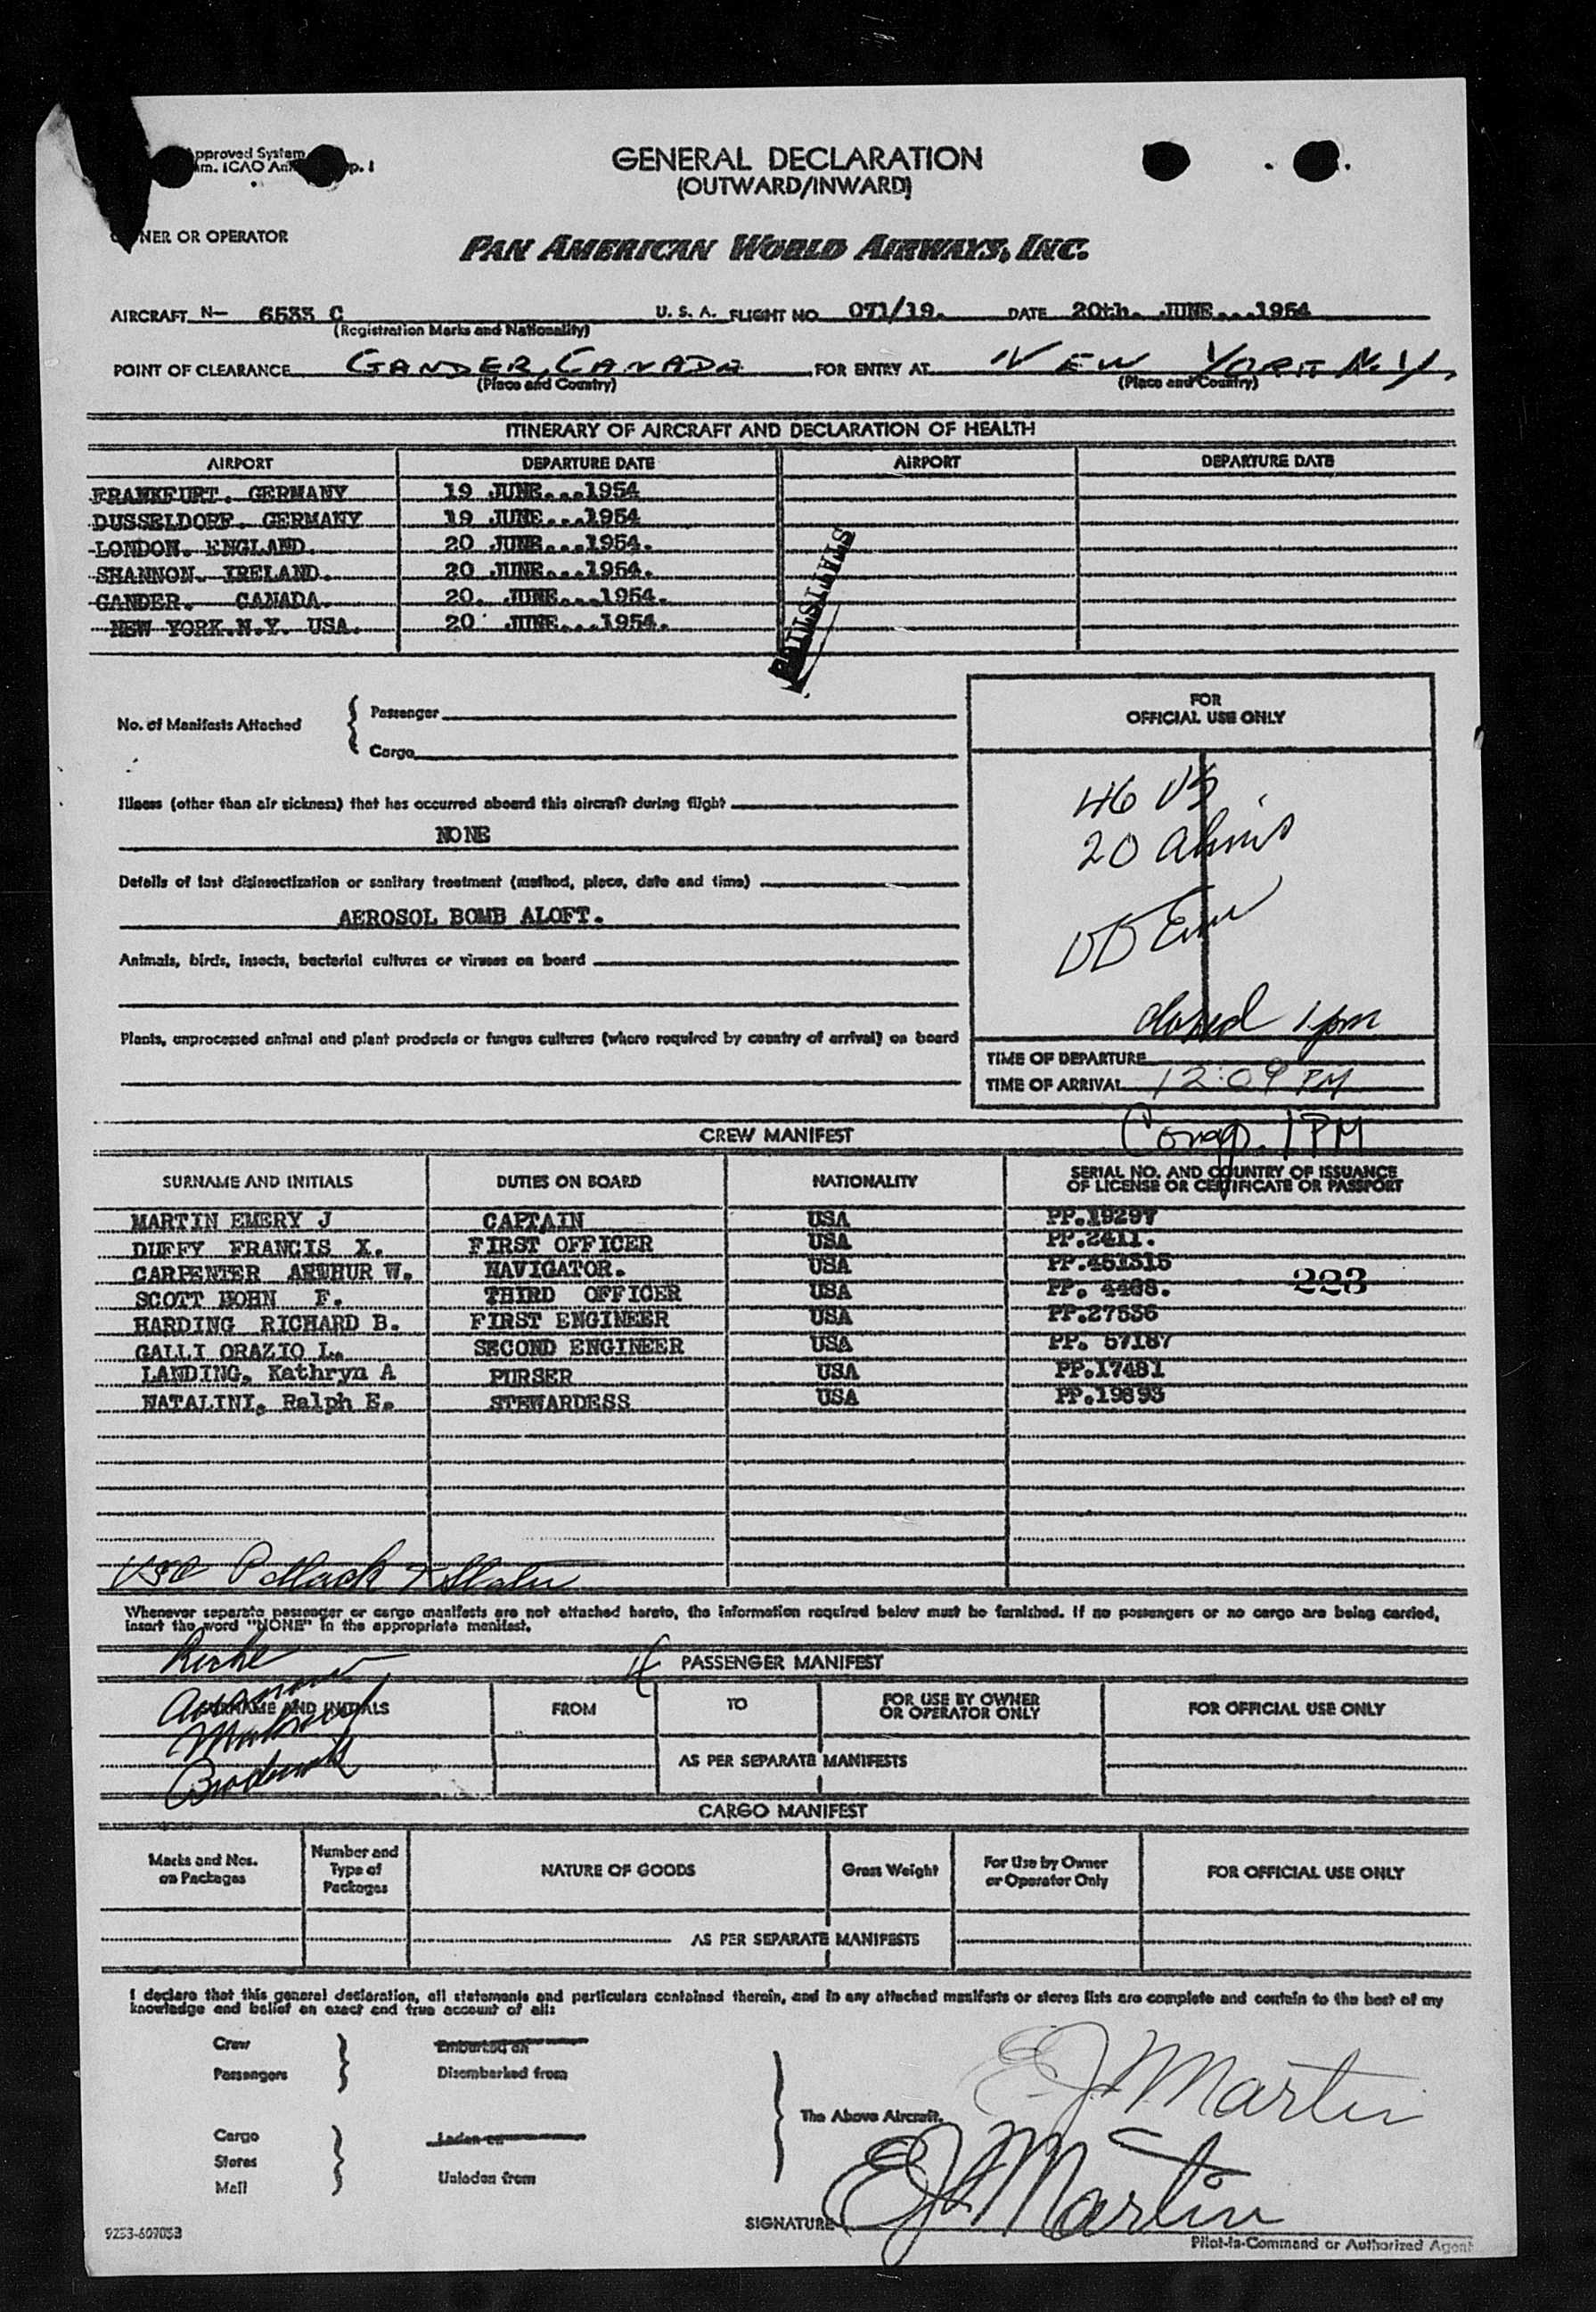 pproved System
m. ICAO An p. 1
GENERAL DECLARATION
(OUTWARD/INWARD)
NER OR OPERATOR
PAN AMERICAN WORLD AIRWAYS, INC.
AIRCRAFT N- 6533 C U. S. A. FLIGHT NO. 071/19. DATE 20th. JUNE...1954
(Registration Marks and Nationality)
POINT OF CLEARANCE GANDER, CANADA FOR ENTRY AT NEW YORK N.Y.
(Place and Country) (Place and Country)
ITINERARY OF AIRCRAFT AND DECLARATION OF HEALTH
AIRPORT DEPARTURE DATE AIRPORT DEPARTURE DATE
FRANKFURT. GERMANY 19 JUNE...1954
DUSSELDORF. GERMANY 19 JUNE...1954
LONDON. ENGLAND. 20 JUNE...1954.
SHANNON. IRELAND. 20 JUNE...1954.
GANDER. CANADA. 20. JUNE...1954.
NEW YORK.N.Y. USA. 20 JUNE...1954.
STATISTICS
No. of Manifests Attached { Passenger
Cargo
FOR
OFFICIAL USE ONLY
Illness (other than air sickness) that has occurred aboard this aircraft during flight
NONE
46 US
20 aliens
Details of last disinsectization or sanitary treatment (method, place, date and time)
AEROSOL BOMB ALOFT.
Animals, birds, insects, bacterial cultures or viruses on board
closed 1 pm
Plants, unprocessed animal and plant products or fungus cultures (where required by country of arrival) on board
TIME OF DEPARTURE
TIME OF ARRIVAL 12:09 PM
1 PM
CREW MANIFEST
SURNAME AND INITIALS DUTIES ON BOARD NATIONALITY SERIAL NO. AND COUNTRY OF ISSUANCE
OF LICENSE OR CERTIFICATE OR PASSPORT
MARTIN EMERY J CAPTAIN USA PP.19297
DUFFY FRANCIS X. FIRST OFFICER USA PP.2411.
CARPENTER ARTHUR W. NAVIGATOR. USA PP.451315
SCOTT HOHN F. THIRD OFFICER USA PP. 4468. 223
HARDING RICHARD B. FIRST ENGINEER USA PP.27536
GALLI ORAZIO L. SECOND ENGINEER USA PP. 57187
LANDING, Kathryn A PURSER USA PP.17481
NATALINI, Ralph E. STEWARDESS USA PP.19893
Pollack
Whenever separate passenger or cargo manifests are not attached hereto, the information required below must be furnished. If no passengers or no cargo are being carried,
insert the word "NONE" in the appropriate manifest.
PASSENGER MANIFEST
SURNAME AND INITIALS FROM TO FOR USE BY OWNER
OR OPERATOR ONLY FOR OFFICIAL USE ONLY
AS PER SEPARATE MANIFESTS
CARGO MANIFEST
Marks and Nos.
on Packages Number and
Type of
Packages NATURE OF GOODS Gross Weight For Use by Owner
or Operator Only FOR OFFICIAL USE ONLY
AS PER SEPARATE MANIFESTS
I declare that this general declaration, all statements and particulars contained therein, and in any attached manifests or stores lists are complete and contain to the best of my
knowledge and belief an exact and true account of all:
Crew Embarked on
Passengers Disembarked from
The Above Aircraft.
E J Martin
Cargo Laden on
Stores
Mail Unladen from
SIGNATURE E J Martin
9253-607053
Pilot-in-Command or Authorized Agent